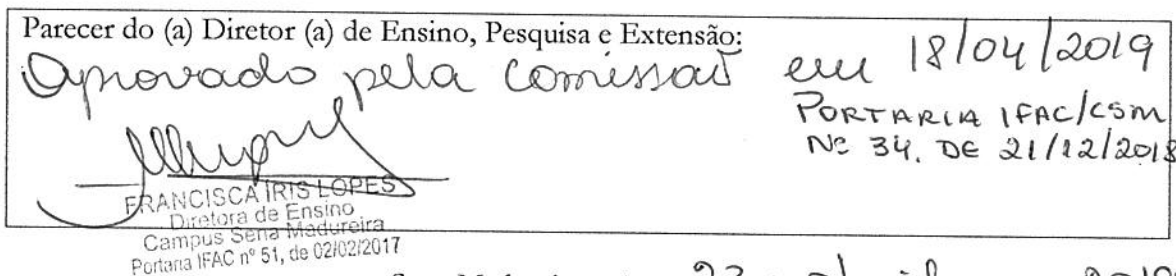 Parecer do (a) Diretor (a) de Ensino, Pesquisa e Extensão:
Aprovado pela Comissão em 18/04/2019
PORTARIA IFAC/CSM
Nº 34, DE 21/12/2018
FRANCISCA IRIS LOPES
Diretora de Ensino
Campus Sena Madureira
Portaria IFAC nº 51, de 02/02/2017